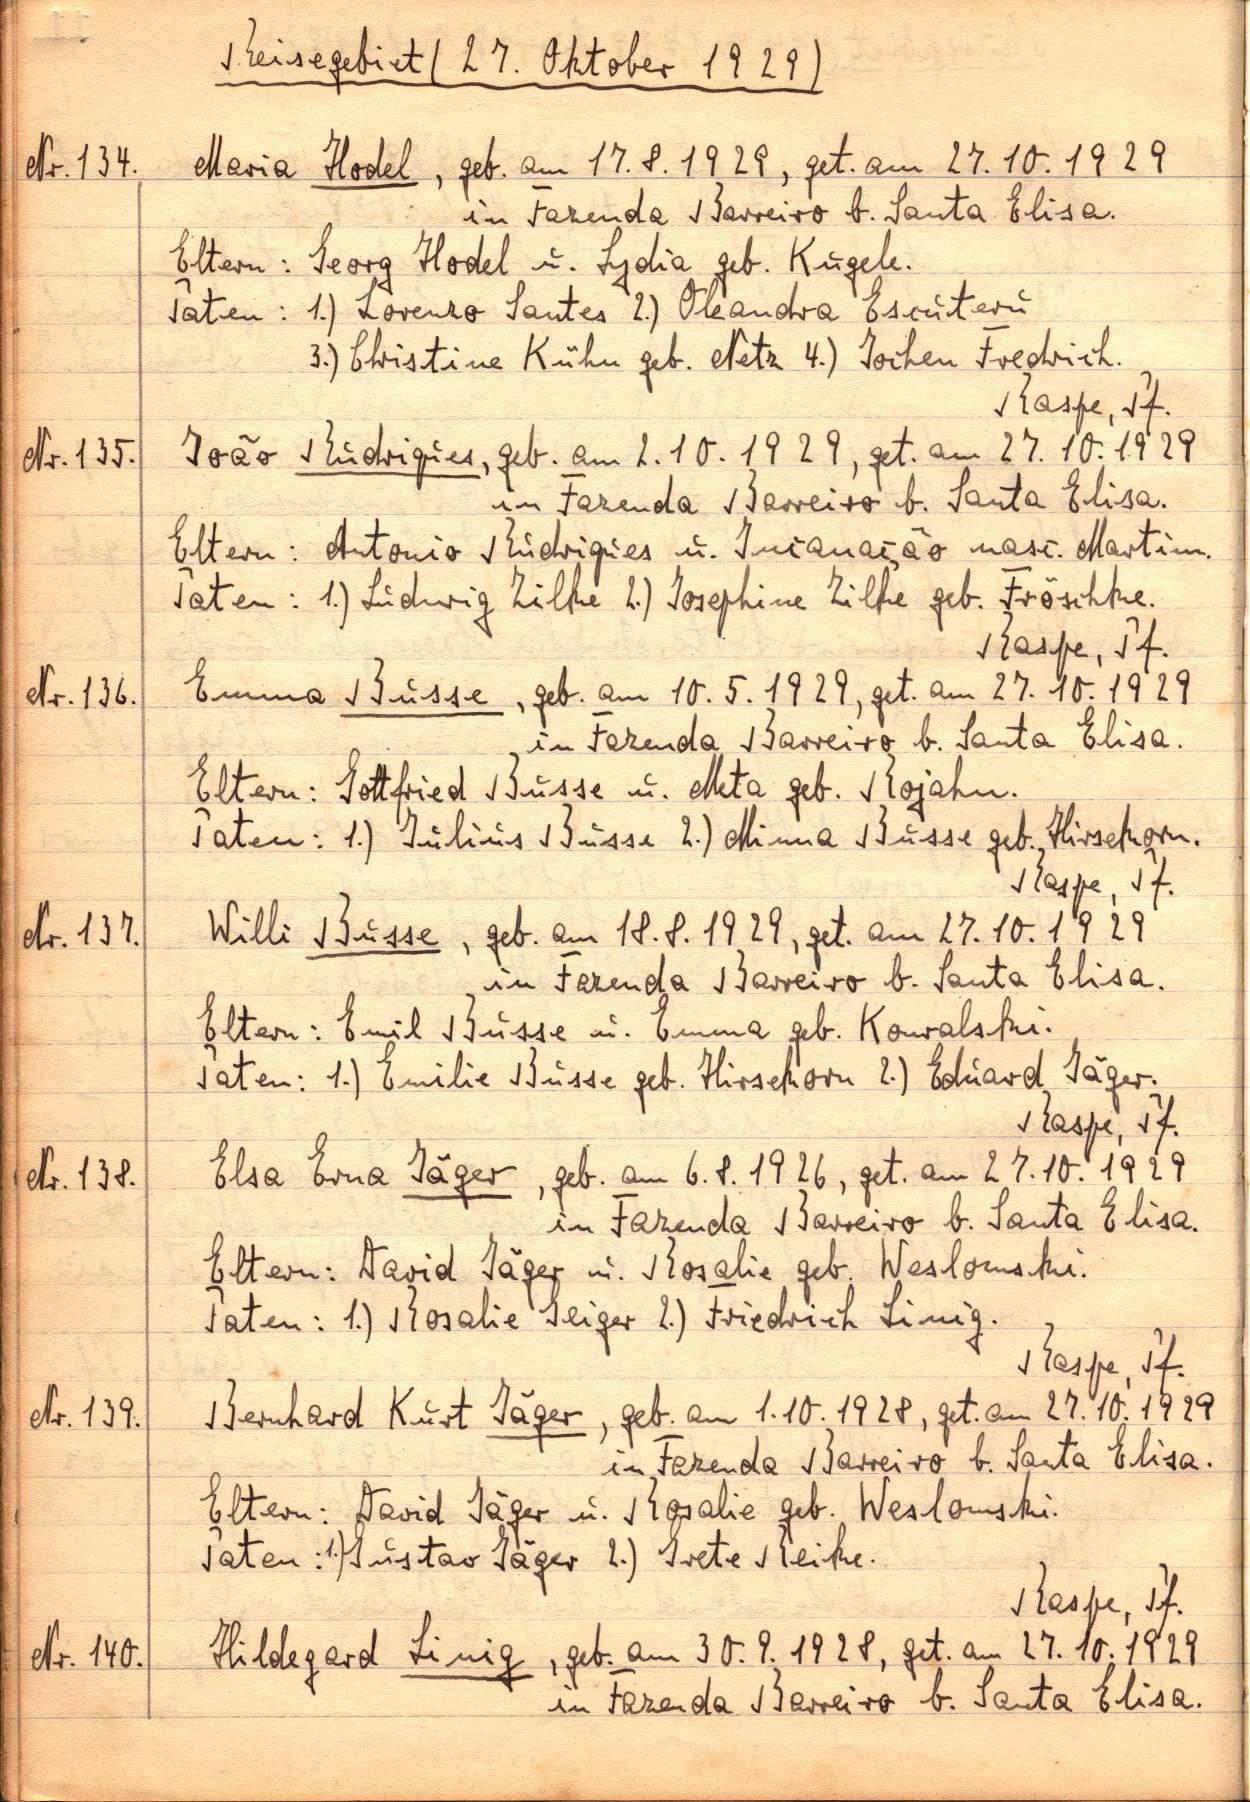 Reisegebiet (27. Oktober 1929)
Nr. 134. Maria Hodel, geb. am 17.8.1929, get. am 27.10.1929
in Fazenda Barreiro b. Santa Elisa.
Eltern: Georg Hodel u. Lydia geb. Kugele.
Paten: 1.) Lorenzo Santes 2.) Oleandra Escuteru
3.) Christine Kühn geb. Netz 4.) Jochen Fredrich.
Raspe, Pf.
Nr. 135. João Rudrigues, geb. am 2.10.1929, get. am 27.10.1929
in Fazenda Barreiro b. Santa Elisa.
Eltern: Antonio Rudrigues u. Incanação nasc. Martim.
Paten: 1.) Ludwig Zilke 2.) Josephine Zilke geb. Fröschke.
Raspe, Pf.
Nr. 136. Emma Busse, geb. am 10.5.1929, get. am 27.10.1929
in Fazenda Barreiro b. Santa Elisa.
Eltern: Gottfried Busse u. Meta geb. Rojahn.
Paten: 1.) Julius Busse 2.) Minna Busse geb. Hirsekorn.
Raspe, Pf.
Nr. 137. Willi Busse, geb. am 18.8.1929, get. am 27.10.1929
in Fazenda Barreiro b. Santa Elisa.
Eltern: Emil Busse u. Emma geb. Kowalski.
Paten: 1.) Emilie Busse geb. Hirsekorn 2.) Eduard Jäger.
Raspe, Pf.
Nr. 138. Elsa Erna Jäger, geb. am 6.8.1926, get. am 27.10.1929
in Fazenda Barreiro b. Santa Elisa.
Eltern: David Jäger u. Rosalie geb. Weslowski.
Paten: 1.) Rosalie Geiger 2.) Friedrich Linig.
Raspe, Pf.
Nr. 139. Bernhard Kurt Jäger, geb. am 1.10.1928, get. am 27.10.1929
in Fazenda Barreiro b. Santa Elisa.
Eltern: David Jäger u. Rosalie geb. Weslowski.
Paten: 1.) Gustav Jäger 2.) Grete Reike.
Raspe, Pf.
Nr. 140. Hildegard Linig, geb. am 30.9.1928, get. am 27.10.1929
in Fazenda Barreiro b. Santa Elisa.